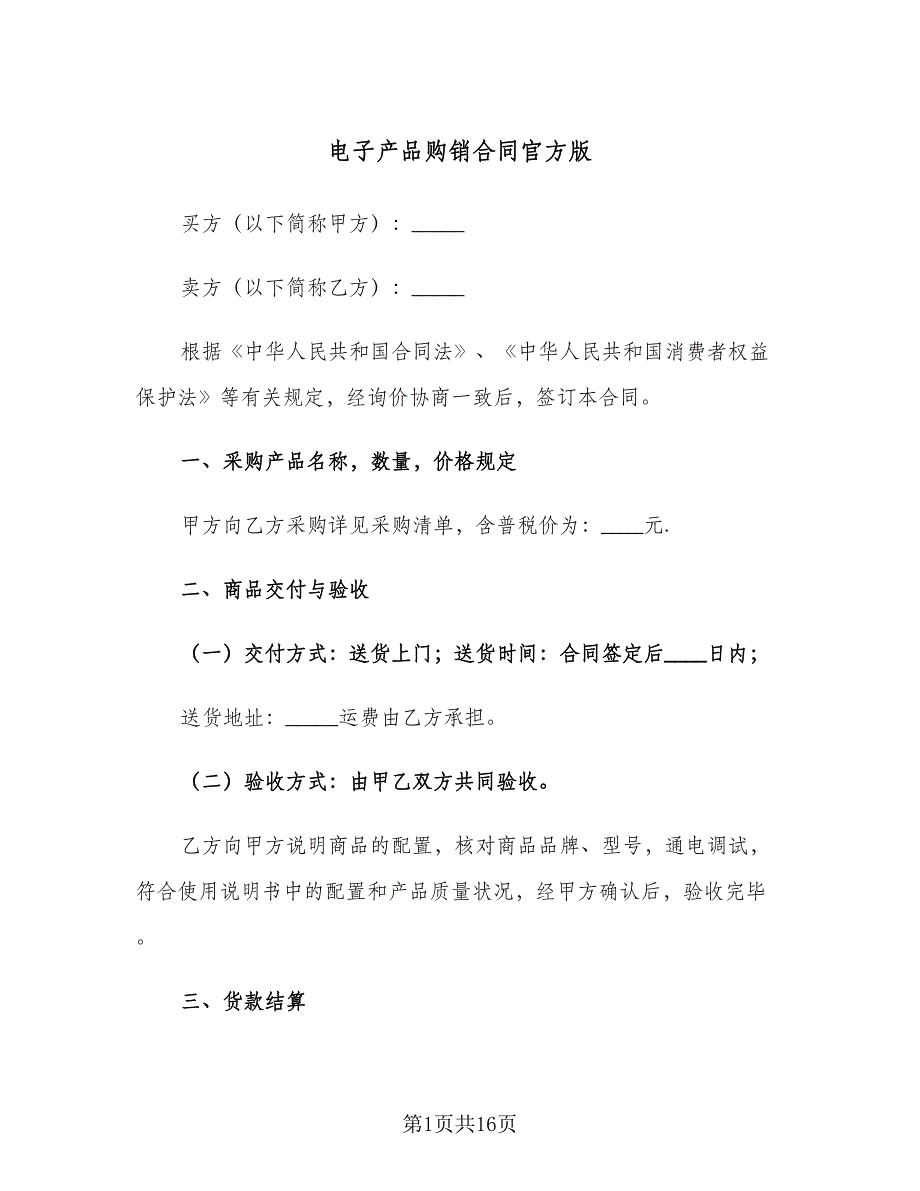 电子产品购销合同官方版
买方（以下简称甲方）：_____
卖方（以下简称乙方）：_____
根据《中华人民共和国合同法》、《中华人民共和国消费者权益
保护法》等有关规定，经询价协商一致后，签订本合同。
一、采购产品名称，数量，价格规定
甲方向乙方采购详见采购清单，含普税价为：____元.
二、商品交付与验收
（一）交付方式：送货上门；送货时间：合同签定后____日内；
送货地址：_____运费由乙方承担。
（二）验收方式：由甲乙双方共同验收。
乙方向甲方说明商品的配置，核对商品品牌、型号，通电调试，
符合使用说明书中的配置和产品质量状况，经甲方确认后，验收完毕
。
三、货款结算
第1页共16页